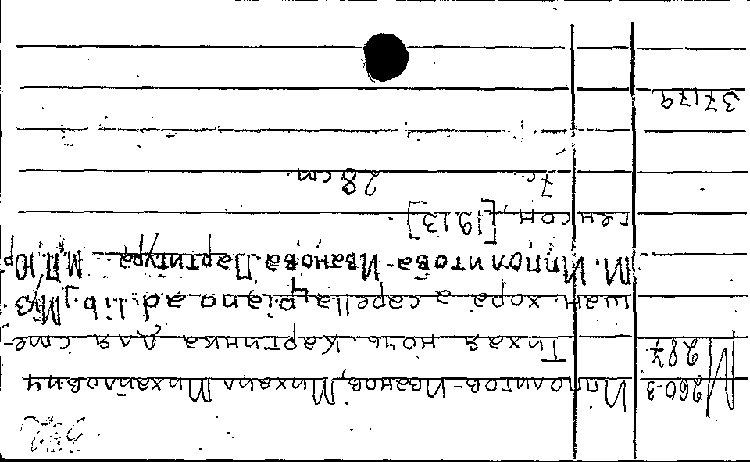 М260-3
287
Ипполитов-Иванов, Михаил Михайлович
Тихая ночь. Картинка для сме-
шан. хора a capella, piano ad lib. Муз.
М. Ипполитова-Иванова. Партитура. М, П. Юр-
генсон, [1913].
7с. 28 cm.
37179